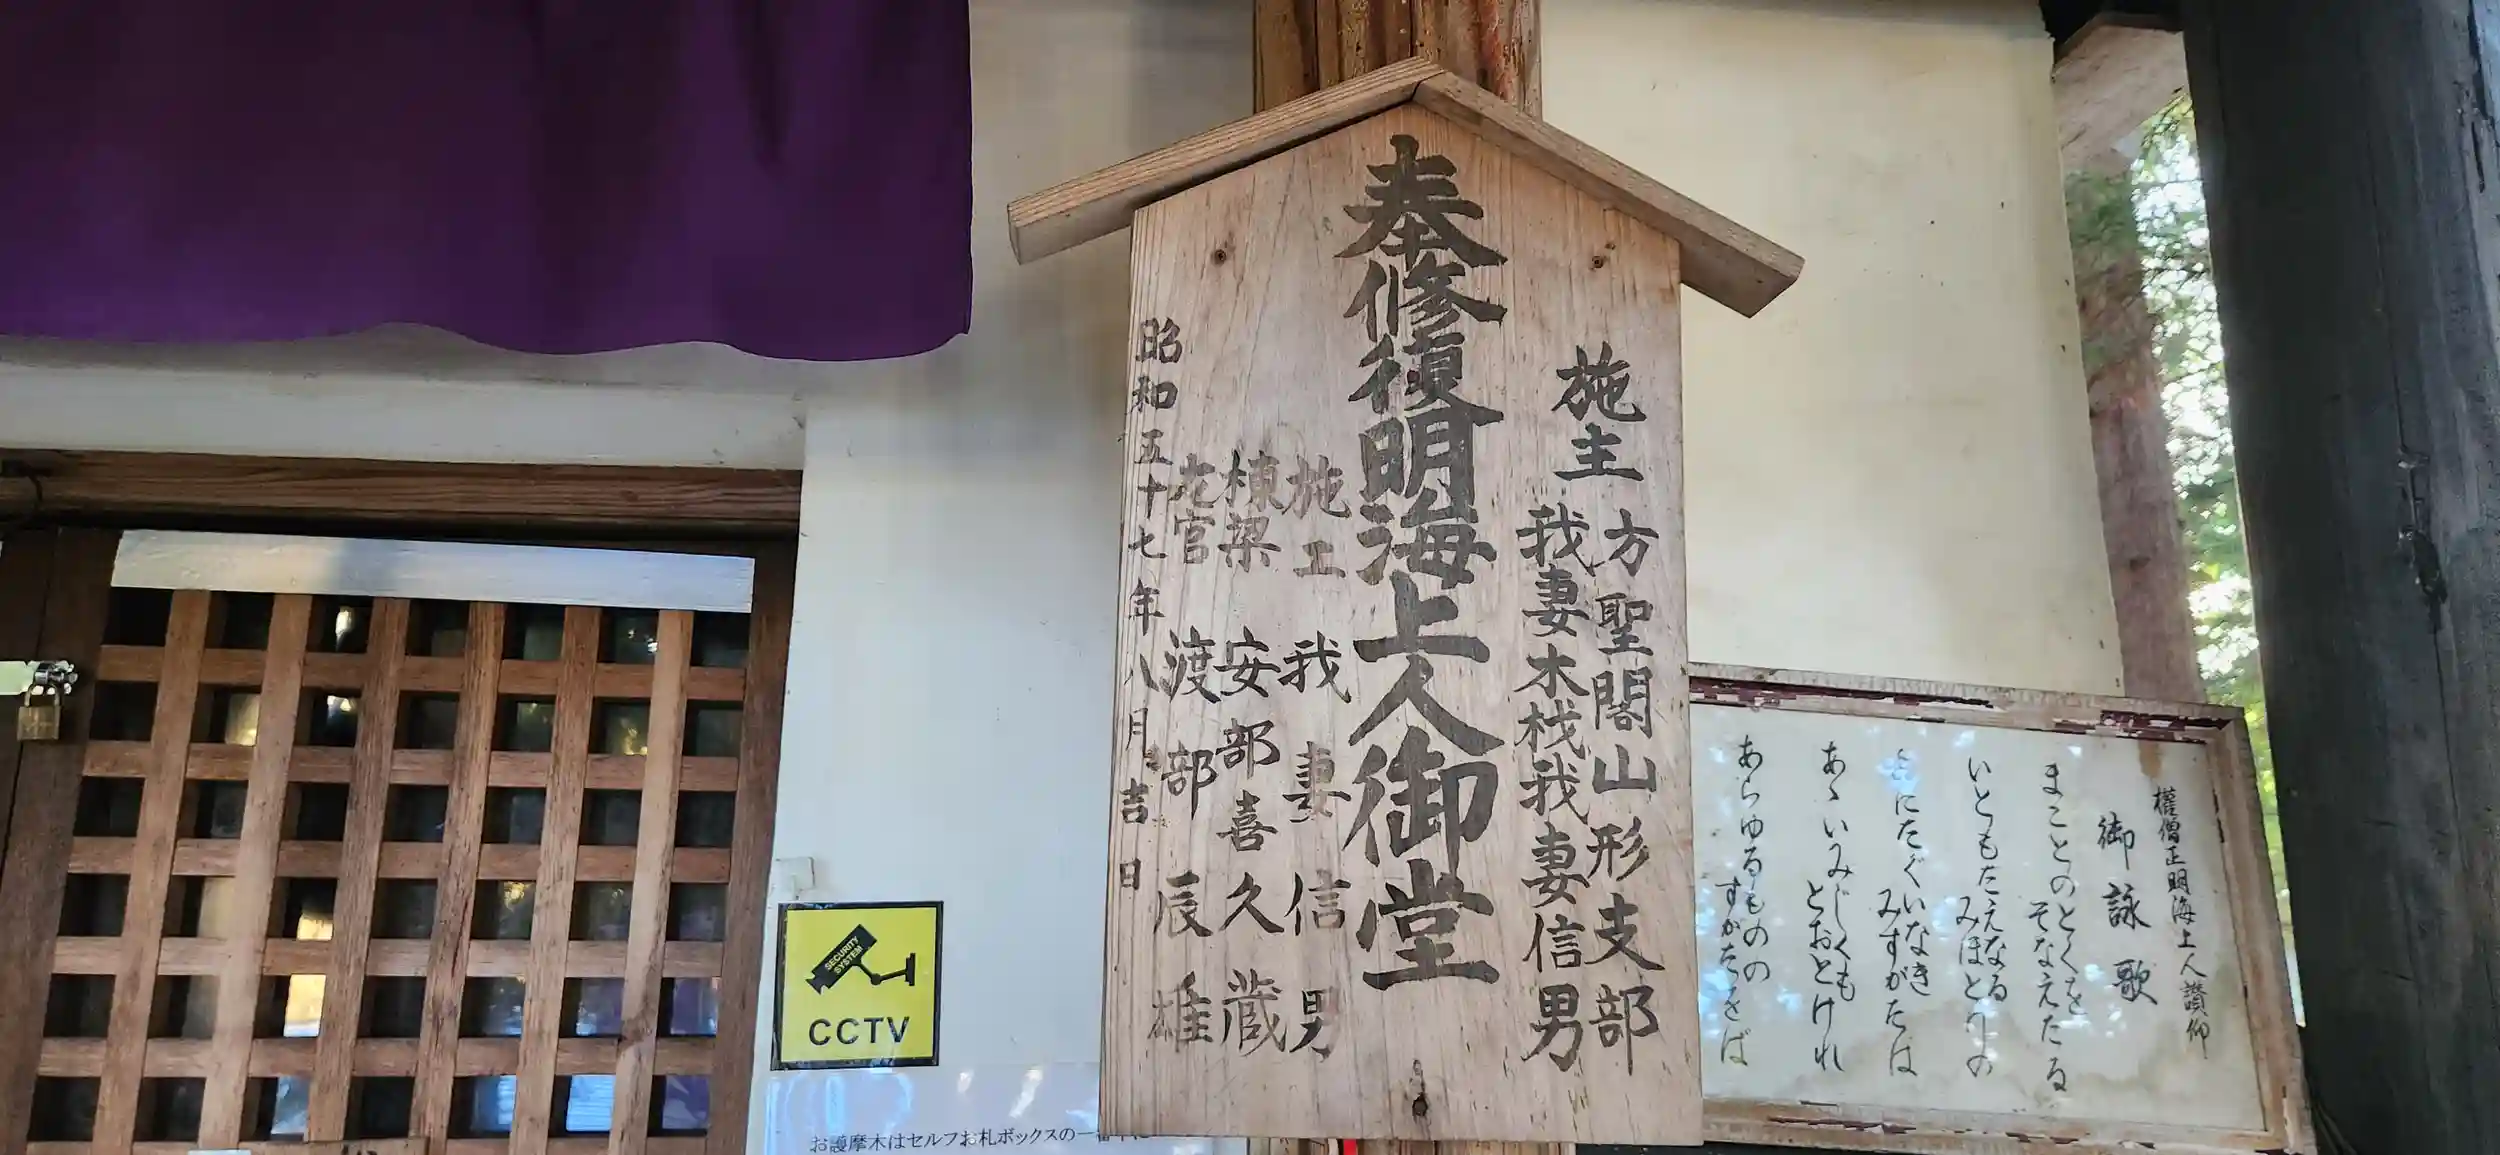 奉修復明海上人御堂
施主
方聖閣山形支部
我妻木材我妻信男
施工 我妻信男
棟梁 安部喜久蔵
渡部辰雄
昭和五十七年八月吉日
權僧正明海上人讃仰
御詠歌
まことのとくを
そなえたる
いともたえなる
みほとけの
よにたぐいなき
みすがたは
あゝいみじくも
とおとけれ
あらゆるものの
すがたをば
SECURITY SYSTEM
CCTV
お護摩木はセルフお札ボックスの一番